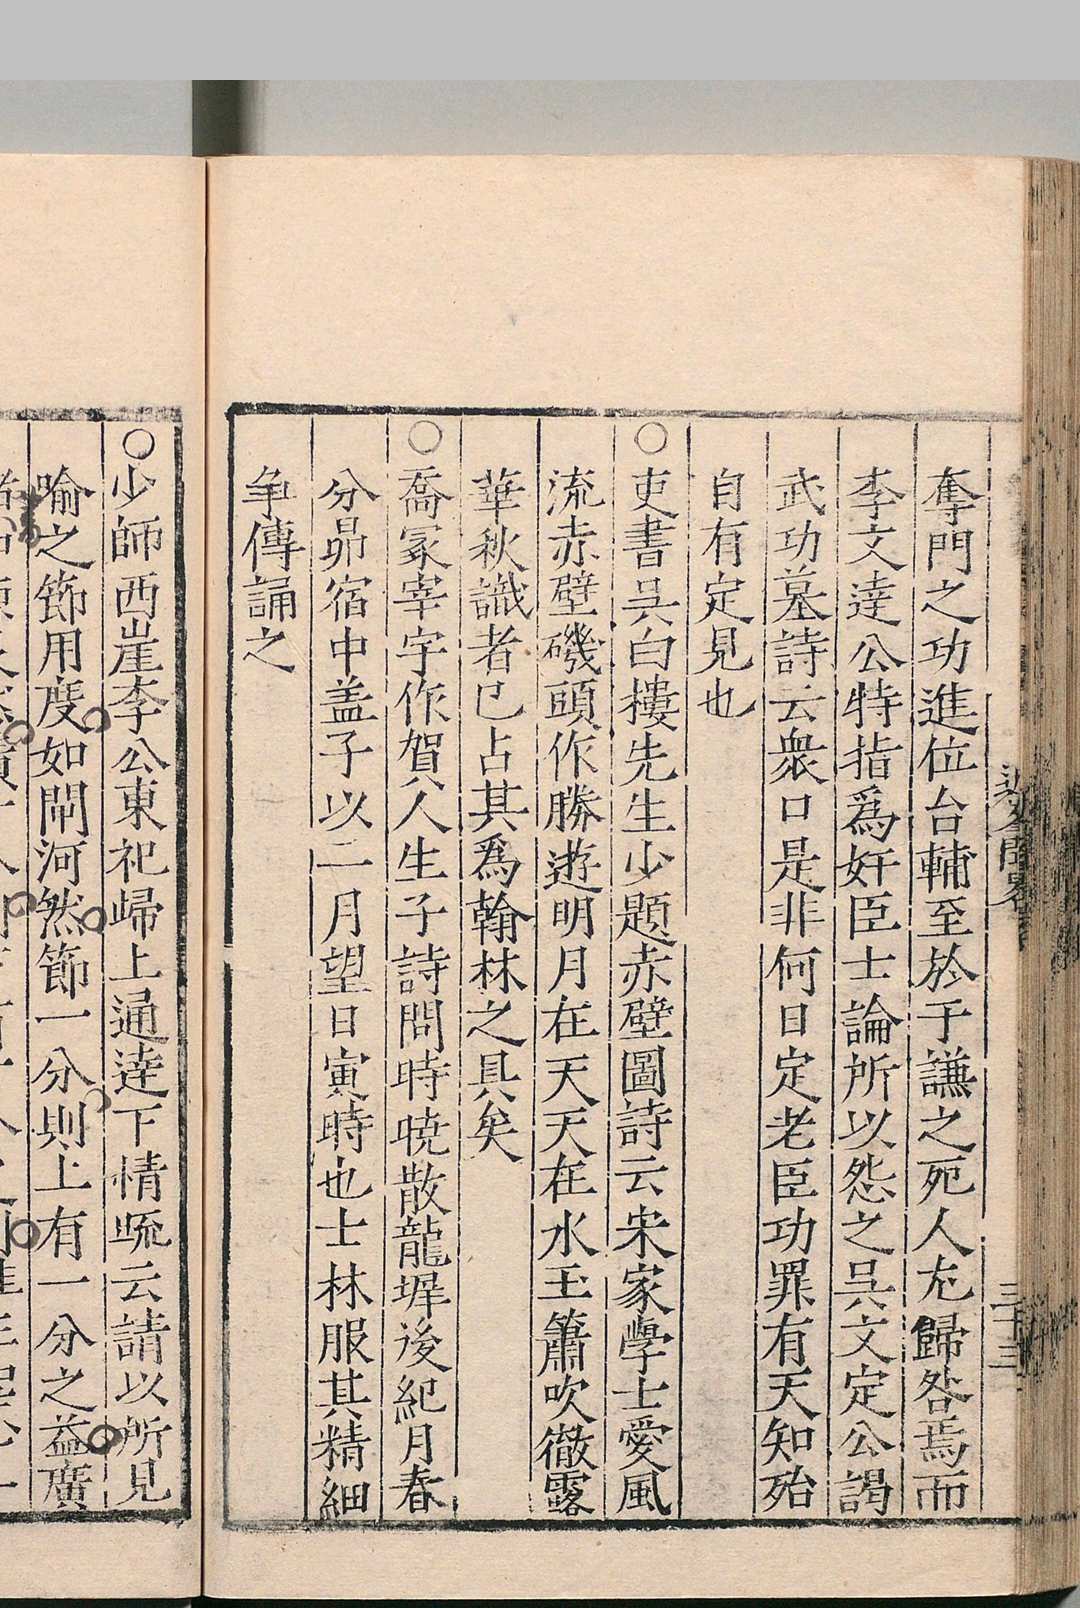 奪門之功進位台輔至於于謙之死人尤歸咎焉而
李文達公特指爲奸臣士論所以怨之呉文定公謁
武功墓詩云衆口是非何日定老臣功罪有天知殆
自有定見也
○吏書呉白樓先生少題赤壁圖詩云宋家學士愛風
流赤壁磯頭作勝遊明月在天天在水玉簫吹徹露
華秋識者已占其爲翰林之具矣
○喬冢宰宇作賀人生子詩問時曉散龍墀後紀月春
分昴宿中盖子以二月望日寅時也士林服其精細
争傳誦之
○少師西崖李公東祀歸上通達下情疏云請以所見
喻之節用度如閘河然節一分則上有一分之益廣